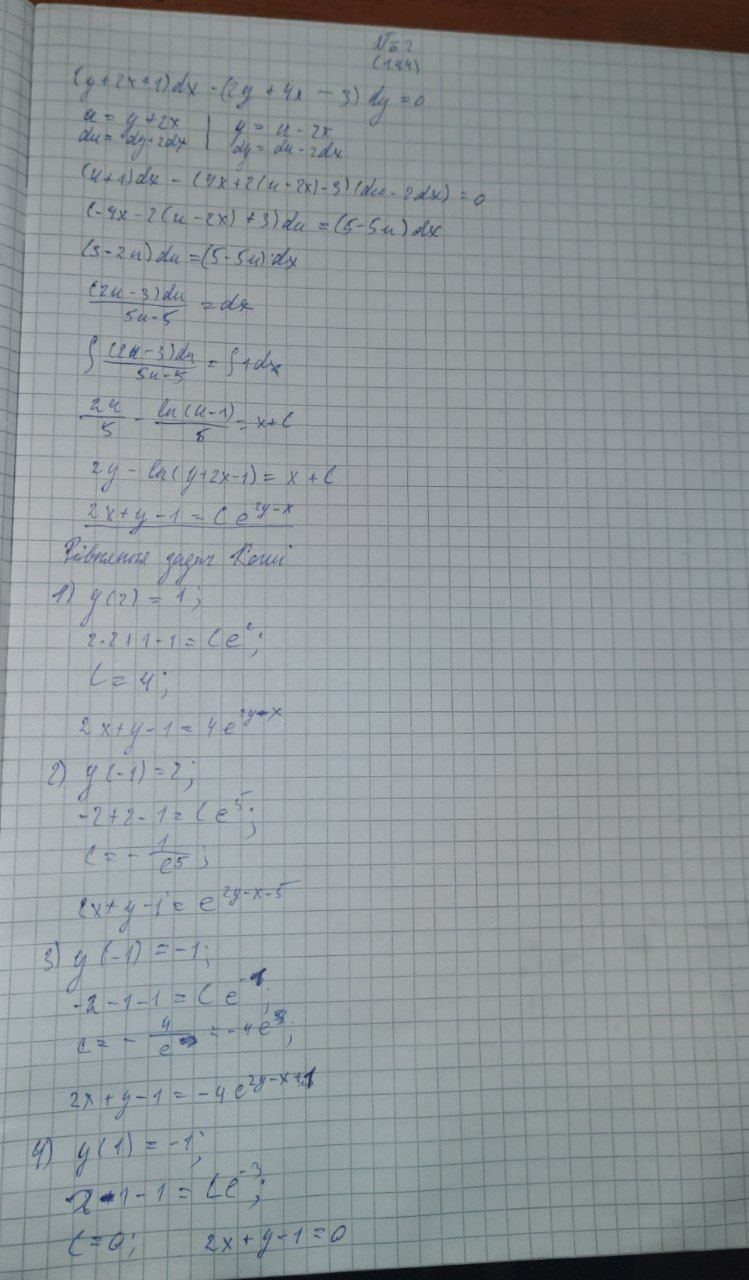 № 2
(144)
(y+2x+1)dx - (2y+4x-3)dy=0
u = y+2x | y = u-2x
du = dy+2dx | dy = du-2dx
(u+1)dx - (4x+2(u-2x)-3)(du-2dx) = 0
(-4x-2(u-2x)+3)du = (5-5u)dx
(3-2u)du = (5-5u)dx
(2u-3)du / 5u-5 = dx
∫ (2u-3)du / 5u-5 = ∫ 1dx
2u/5 - ln(u-1)/5 = x+C
2y - ln(y+2x-1) = x+C
2x+y-1 = Ce^{2y-x}
задач Коші
1) y(2) = 1;
2·2+1-1 = Ce^0;
C = 4;
2x+y-1 = 4e^{2y-x}
2) y(-1)=2;
-2+2-1 = Ce^5;
C = - 1/e^5;
2x+y-1 = e^{2y-x-5}
3) y(-1) = -1;
-2-1-1 = Ce^{-1};
C = - 4/e = -4e;
2x+y-1 = -4e^{2y-x+1}
4) y(1) = -1;
2-1-1 = Ce^{-3};
C=0; 2x+y-1=0